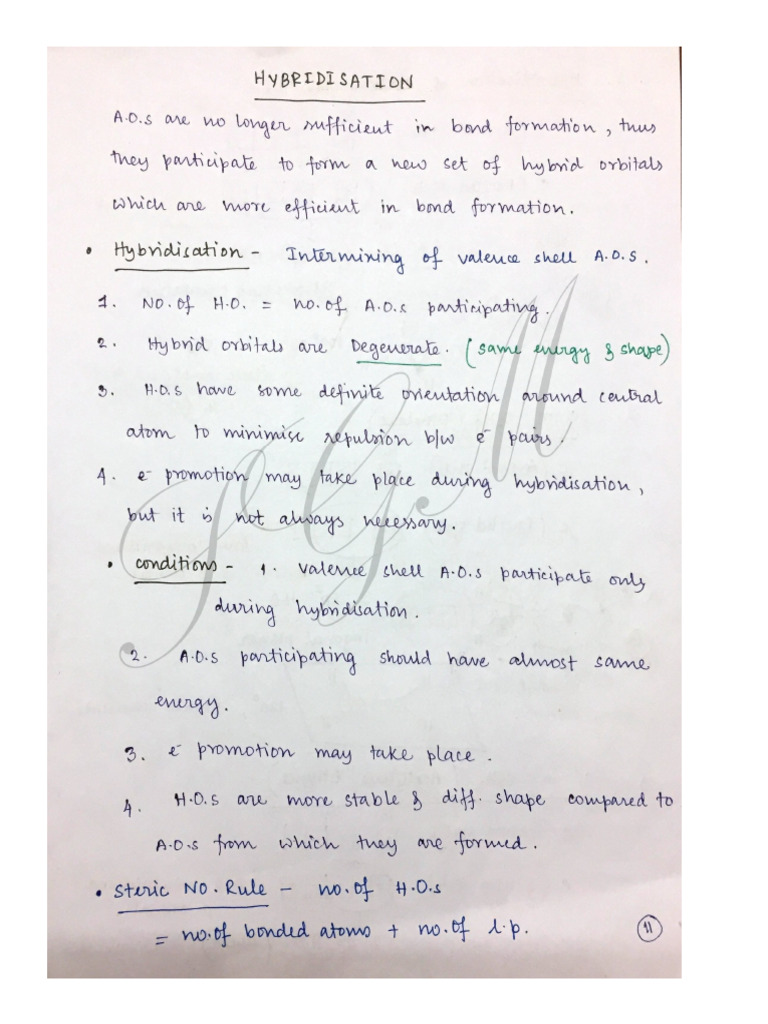 HYBRIDISATION
A.O.s are no longer sufficient in bond formation, thus
they participate to form a new set of hybrid orbitals
which are more efficient in bond formation.
• Hybridisation - Intermixing of valence shell A.O.S.
1. NO. of H.O. = no. of A.O.s participating.
2. Hybrid orbitals are Degenerate. (same energy & shape)
3. H.O.s have some definite orientation around central
atom to minimise repulsion b/w e⁻ pairs.
4. e⁻ promotion may take place during hybridisation,
but it is not always necessary.
• conditions - 1. valence shell A.O.s participate only
during hybridisation.
2. A.O.s participating should have almost same
energy.
3. e⁻ promotion may take place.
4. H.O.s are more stable & diff. shape compared to
A.O.s from which they are formed.
• Steric NO. Rule - no. of H.O.s
= no. of bonded atoms + no. of l.p.
11